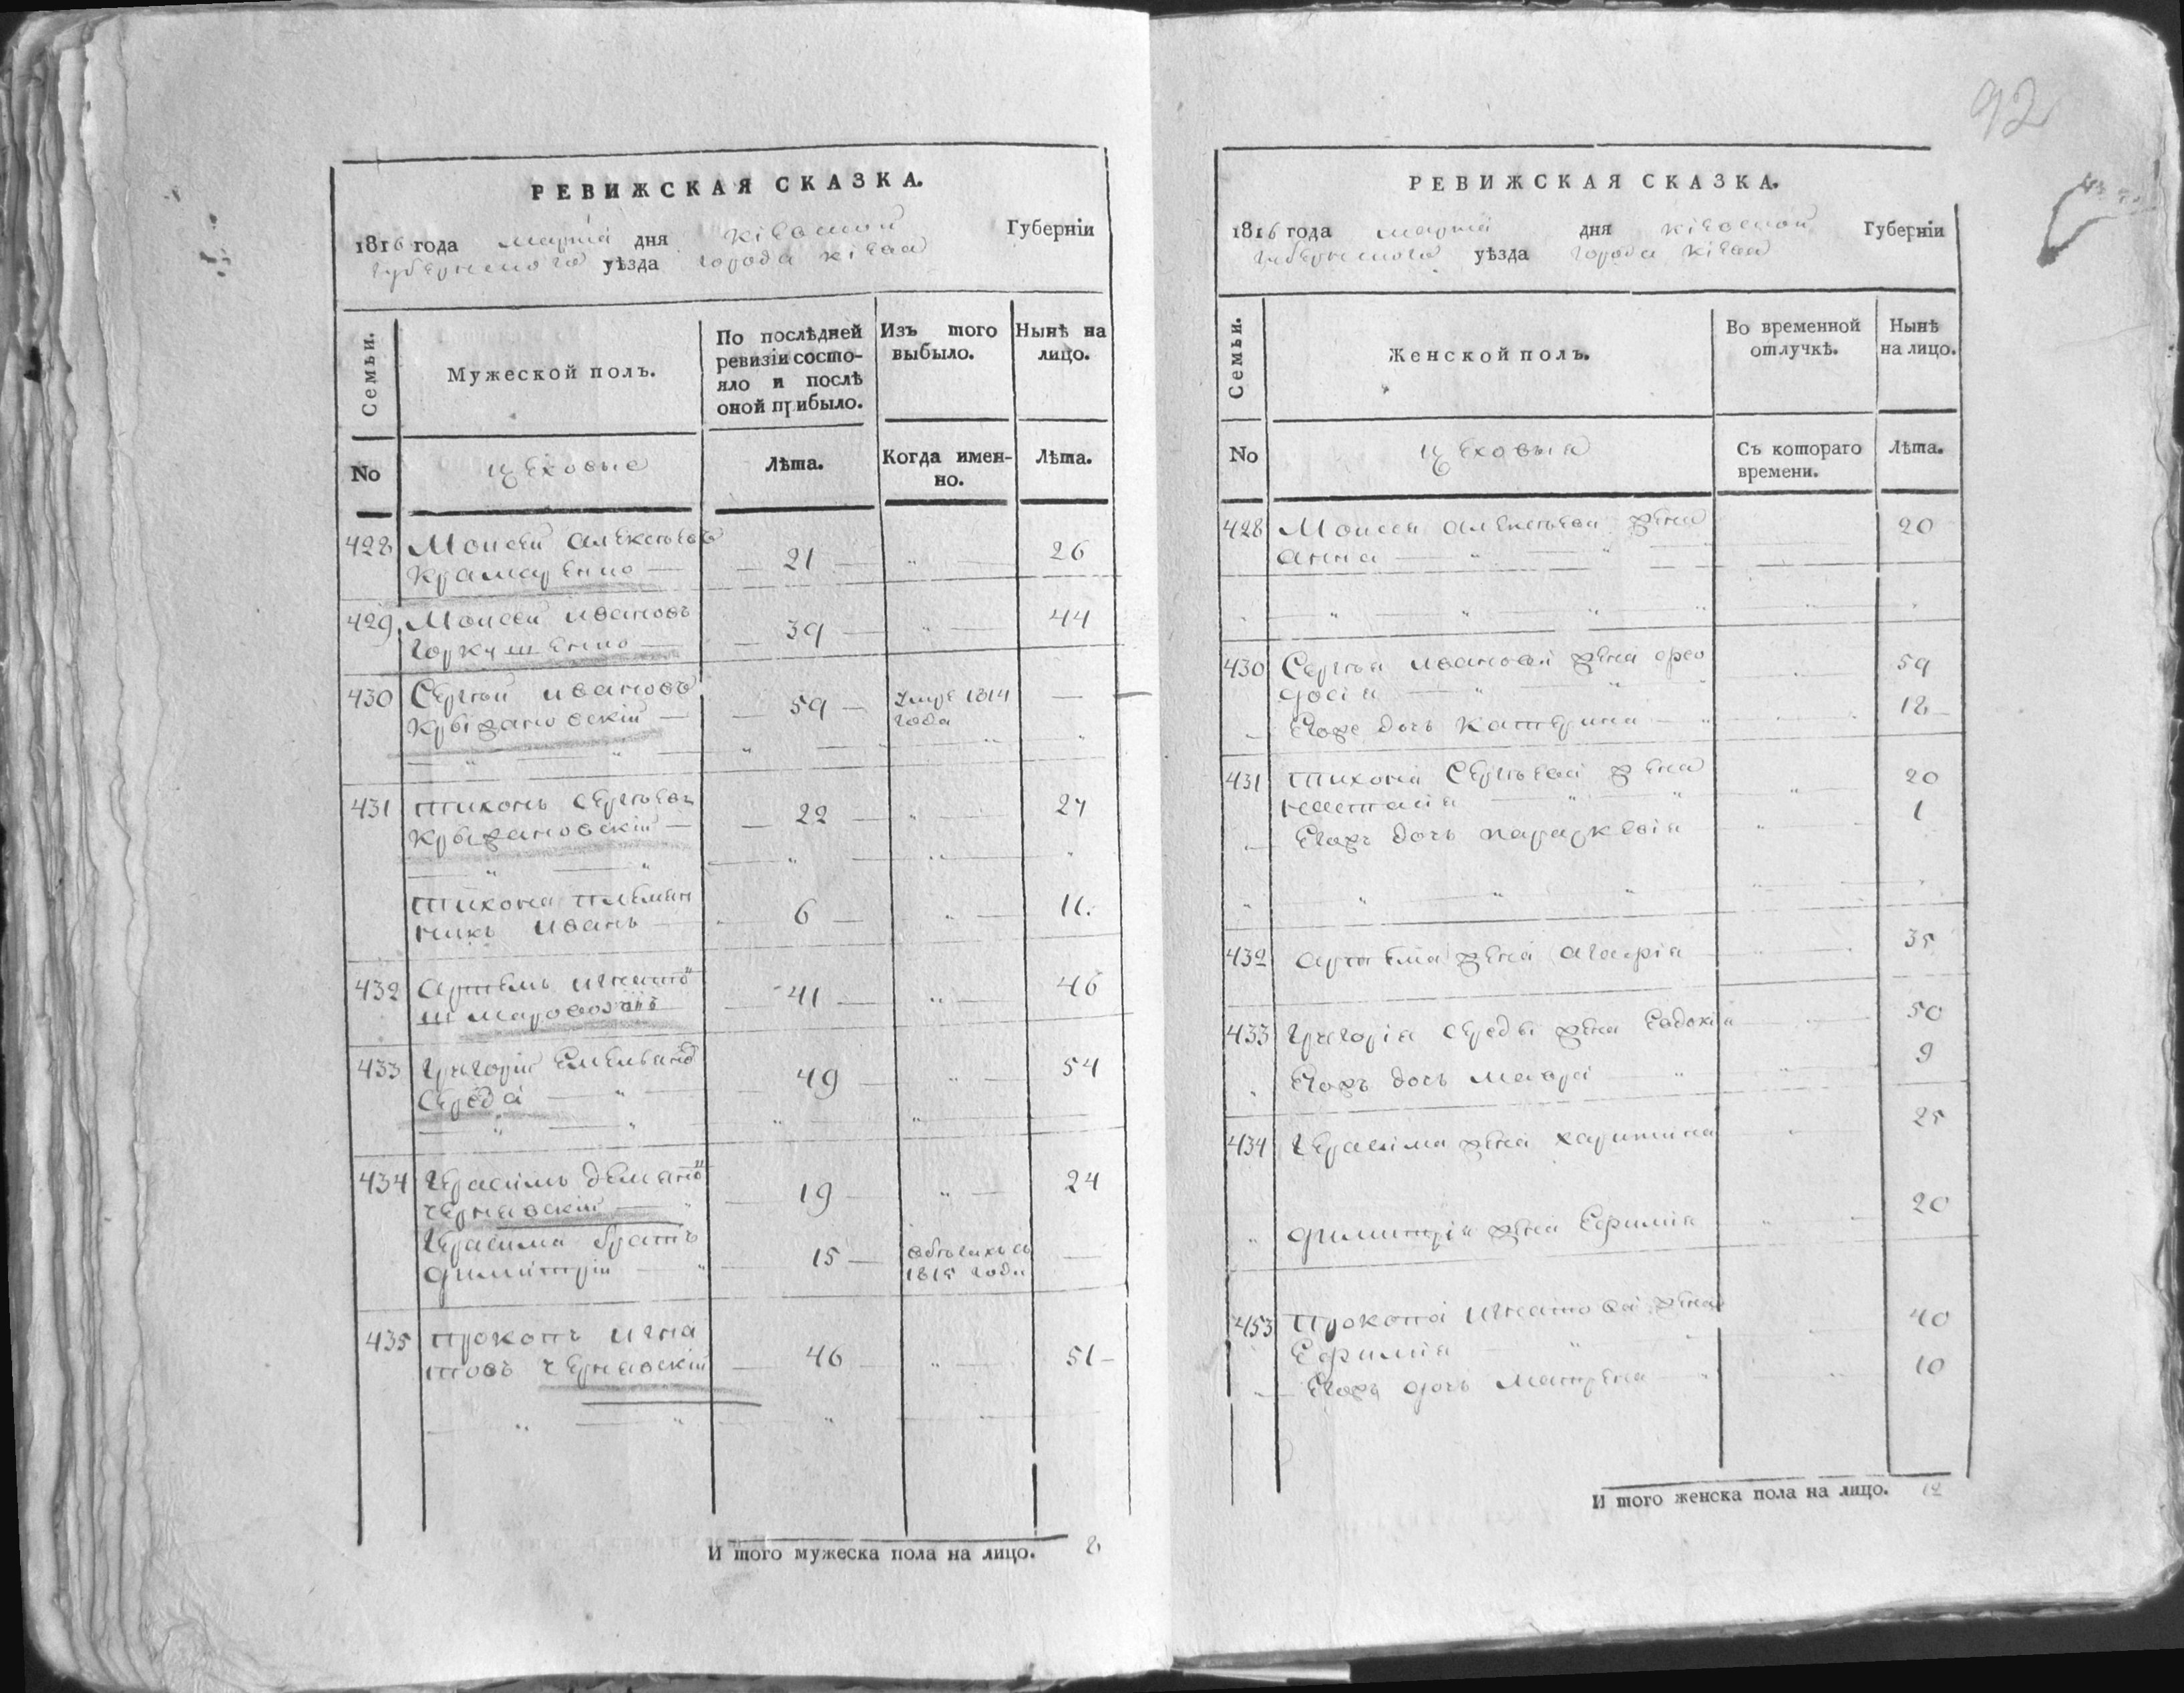 92
РЕВИЖСКАЯ СКАЗКА.
1816 года марта дня Кіевской Губерніи
Губернского уѣзда города Кіева
Семьи.
Мужеской полъ.
По послѣдней ревизіи состо-
яло и послѣ оной прибыло.
Изъ того выбыло.
Нынѣ на лицо.
No
цеховые
Лѣта.
Когда имен-
но.
Лѣта.
428 Моисей Алексѣевъ
Крамаренко — 21 — 26
429 Моисей Ивановъ
— 39 — 44
430 Сергѣй Ивановъ
Крыжановскій — 59 — Умре 1814
года —
431 Тихонъ Сергѣевъ
Крыжановскій — 22 — 27
Тихона племян
никъ Иванъ — 6 — 11.
432 Артемъ Игнато
— 41 — 46
433 Григорій Емельяно
Середа — 49 — 54
434 Герасимъ Демяно
Чернявскій — 19 — 24
Герасима братъ
Димитрій — 15 —
1815 года —
435 Прокопъ Игна
товъ Чернявскій — 46 — 51 —
И того мужеска пола на лицо. 8
РЕВИЖСКАЯ СКАЗКА.
1816 года марта дня Кіевской Губерніи
Губернского уѣзда города Кіева
Семьи.
Женской полъ.
Во временной отлучкѣ.
Нынѣ на лицо.
No
цеховыя
Съ котораго времени.
Лѣта.
428 Моисея Алексѣева жена 20
Анна
430 Сергѣя Иванова жена Фео 59
досія
Егоже дочь Катерина — 18
431 Тихона Сергѣева жена 20
Настасія
Егожъ дочь Параскевія 1
432 Артема жена Агафія 35
433 Григорія Середы жена Евдокія 50
Егожъ дочь Мавра 9
434 Герасима жена Харитина 25
Димитрія жена Ефимія 20
453 Прокопа Игнатова жена 40
Ефимія
Егожъ дочь Матрена 10
И того женска пола на лицо. 12